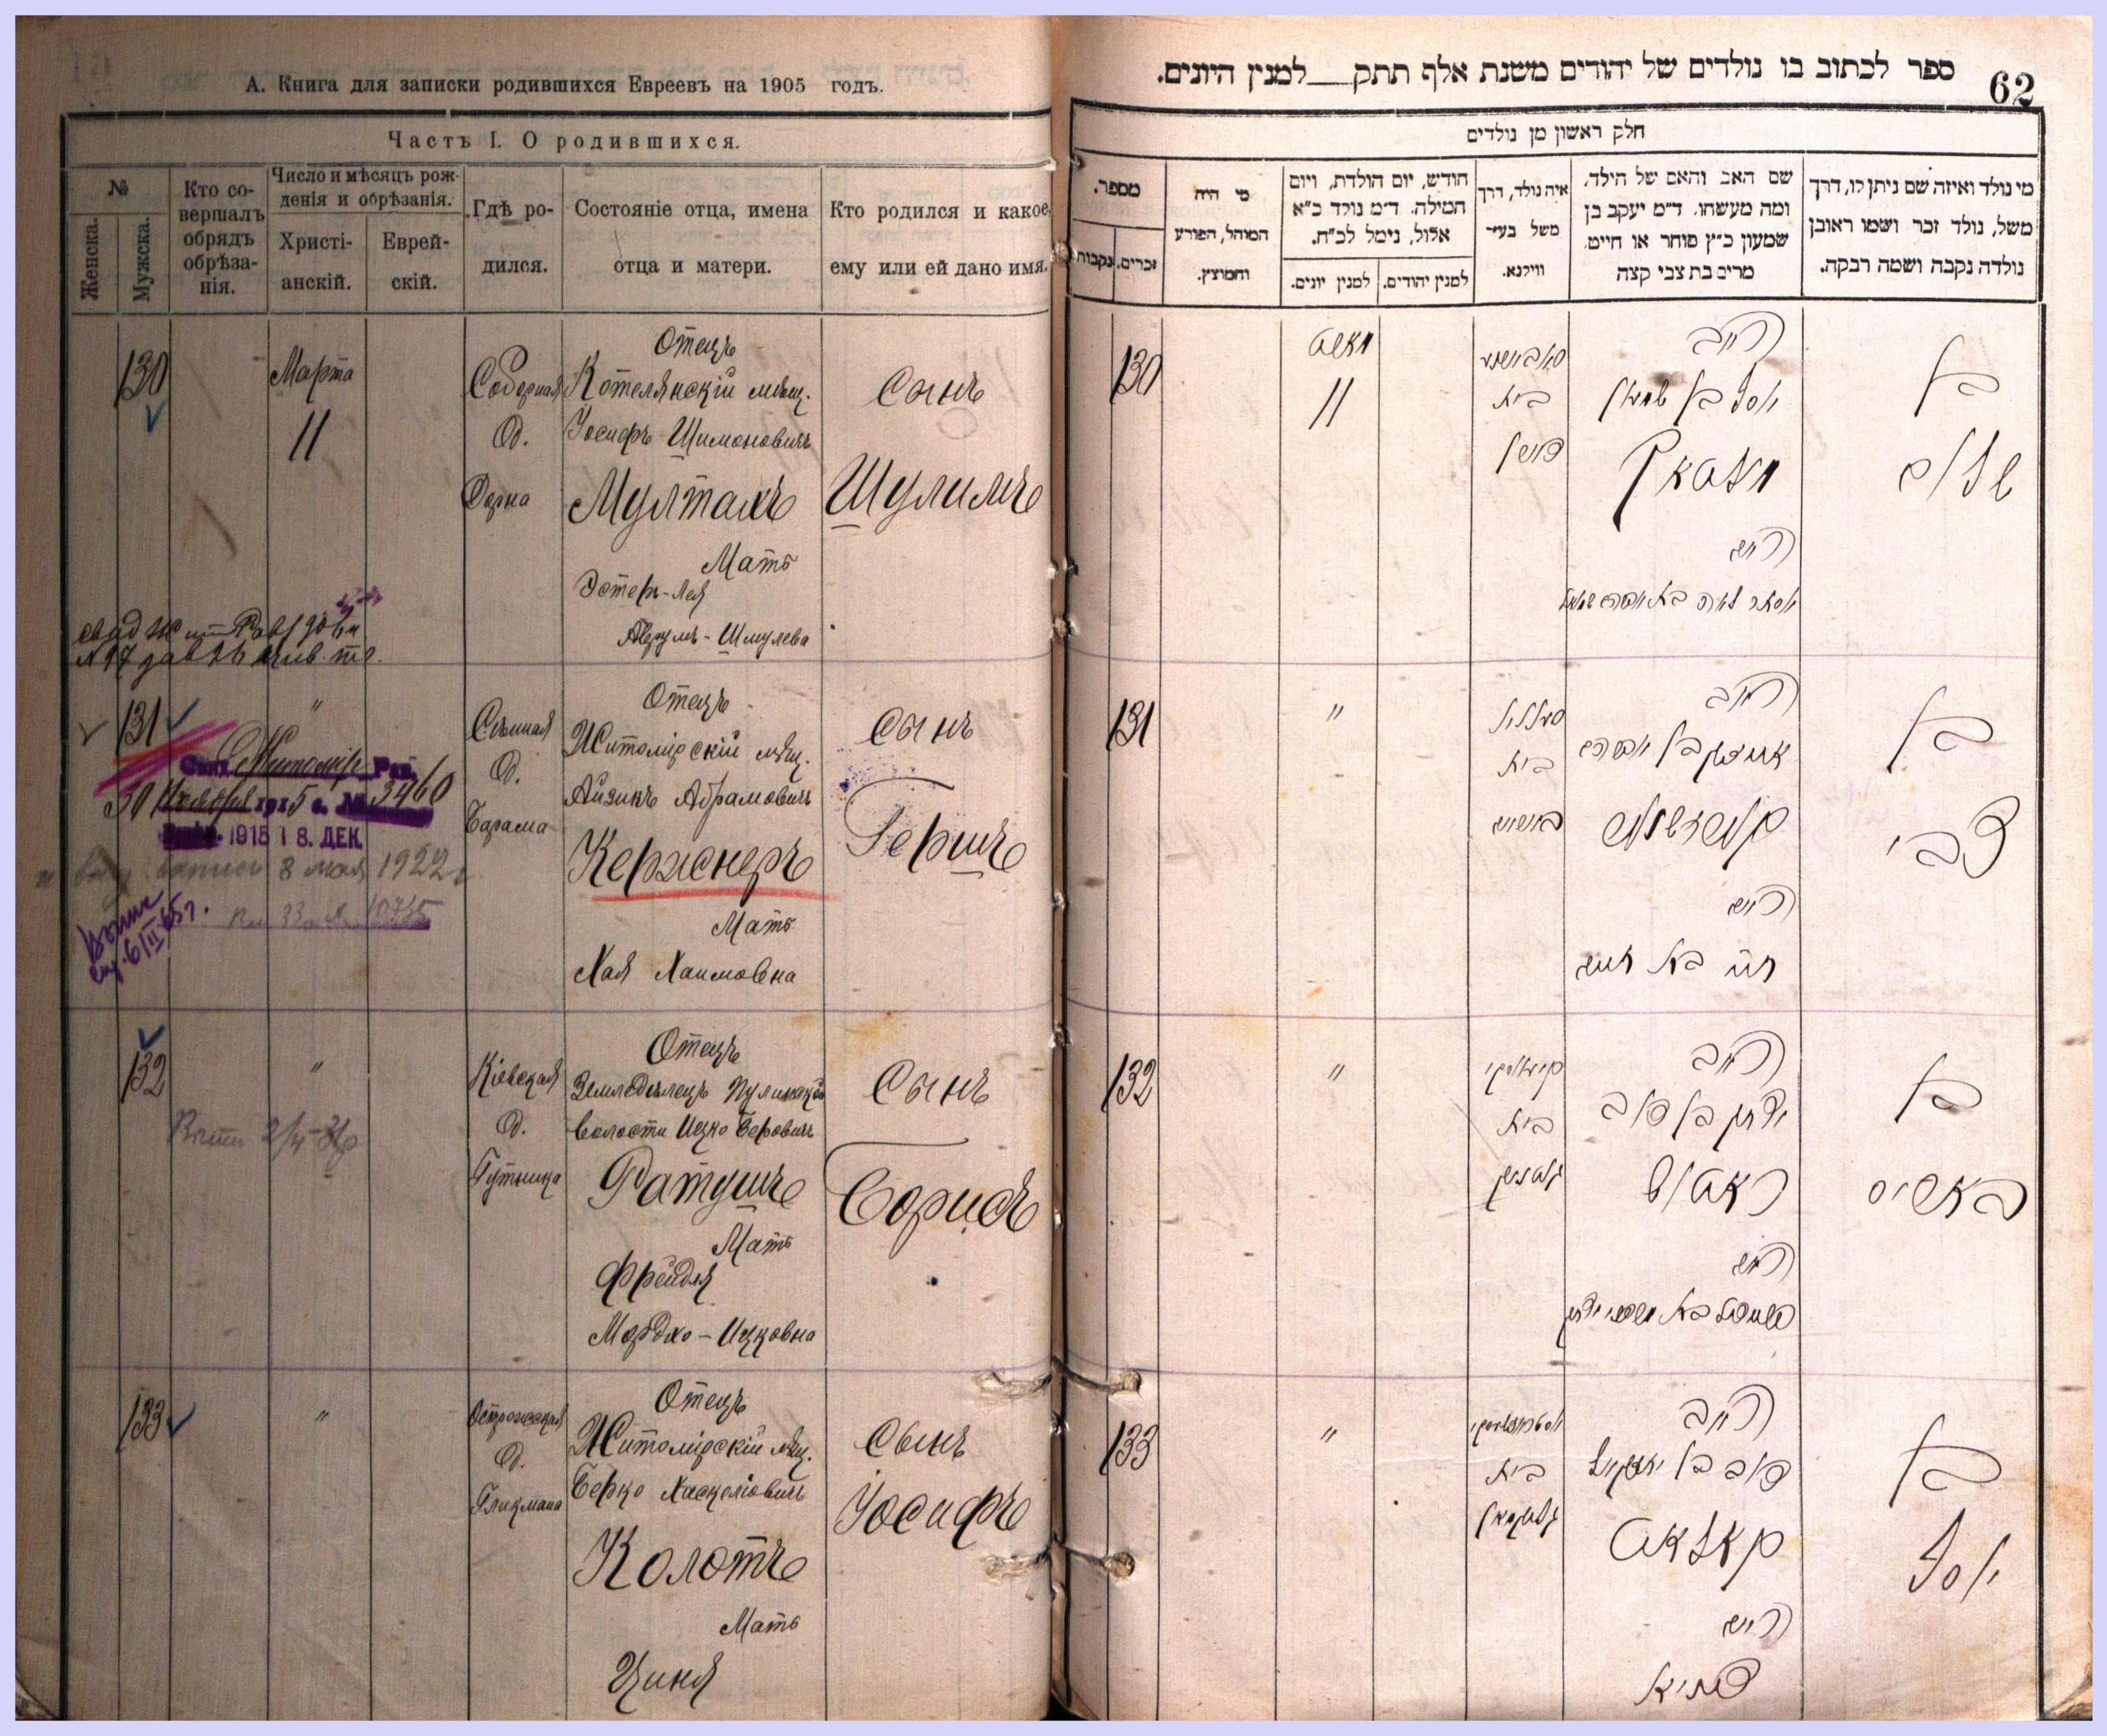 А. Книга для записки родившихся Евреевъ на 1905 годъ.
Часть I. О родившихся.
№
Женска.
Мужска.
Кто со-
вершалъ
обрядъ
обрѣза-
нія.
Число и мѣсяцъ рож-
денія и обрѣзанія.
Христі-
анскій.
Еврей-
скій.
Гдѣ ро-
дился.
Состояніе отца, имена
отца и матери.
Кто родился и какое
ему или ей дано имя.
130
Марта
11
Соборная
д.
Отецъ
Котелянскій мѣщ.
Іосифъ Шимоновичъ
Мулташъ
Мать
Эстеръ-Лея
Аврумъ-Шмулева
Сынъ
Шулимъ
131
"
Сѣнная
д.
Барама
Отецъ
Житомірскій мѣщ.
Айзикъ Абрамовичъ
Кержнеръ
Мать
Хая Хаимовна
Сынъ
Гершъ
1915 18. ДЕК.
8 мая 1922
132
"
Кіевская
д.
Гутника
Отецъ
Земледѣлецъ Пулинской
волости Ицко Беровичъ
Ратушъ
Мать
Фрейдля
Мордко-Ицковна
Сынъ
Борисъ
133
"
Острожская
д.
Гликмана
Отецъ
Житомірскій мѣщ.
Берко Хаскеліовичъ
Колотъ
Мать
Циня
Сынъ
Іосифъ
ספר לכתוב בו נולדים של יהודים משנת אלף תתק__למנין היונים.
62
חלק ראשון מן נולדים
מספר.
זכרים.
נקבות
מי היה
המוהל, הפורע
והמוצץ.
חודש, יום הולדת, ויום
המילה. ד״מ נולד כ״א
אלול, נימל לכ״ח.
למנין יונים.
למנין יהודים.
איה נולד, דרך
משל בעיר
ווילנא.
שם האב והאם של הילד,
ומה מעשהו. ד״מ יעקב בן
שמעון כ״ץ סוחר או חייט
מרים בת צבי קצה
מי נולד ואיזה שם ניתן לו, דרך
משל, נולד זכר ושמו ראובן
נולדה נקבה ושמה רבקה.
130
מארט
11
בית
האב
יוסף בן שמעון
האם
בן
שלום
131
"
בית
האב
האם
חיה בת חיים
בן
צבי
132
"
בית
האב
יצחק בן דוב
ראטוש
האם
בן
באריס
133
"
בית
גליקמאן
האב
דוב בן יחזקאל
קאלאט
האם
בן
יוסף